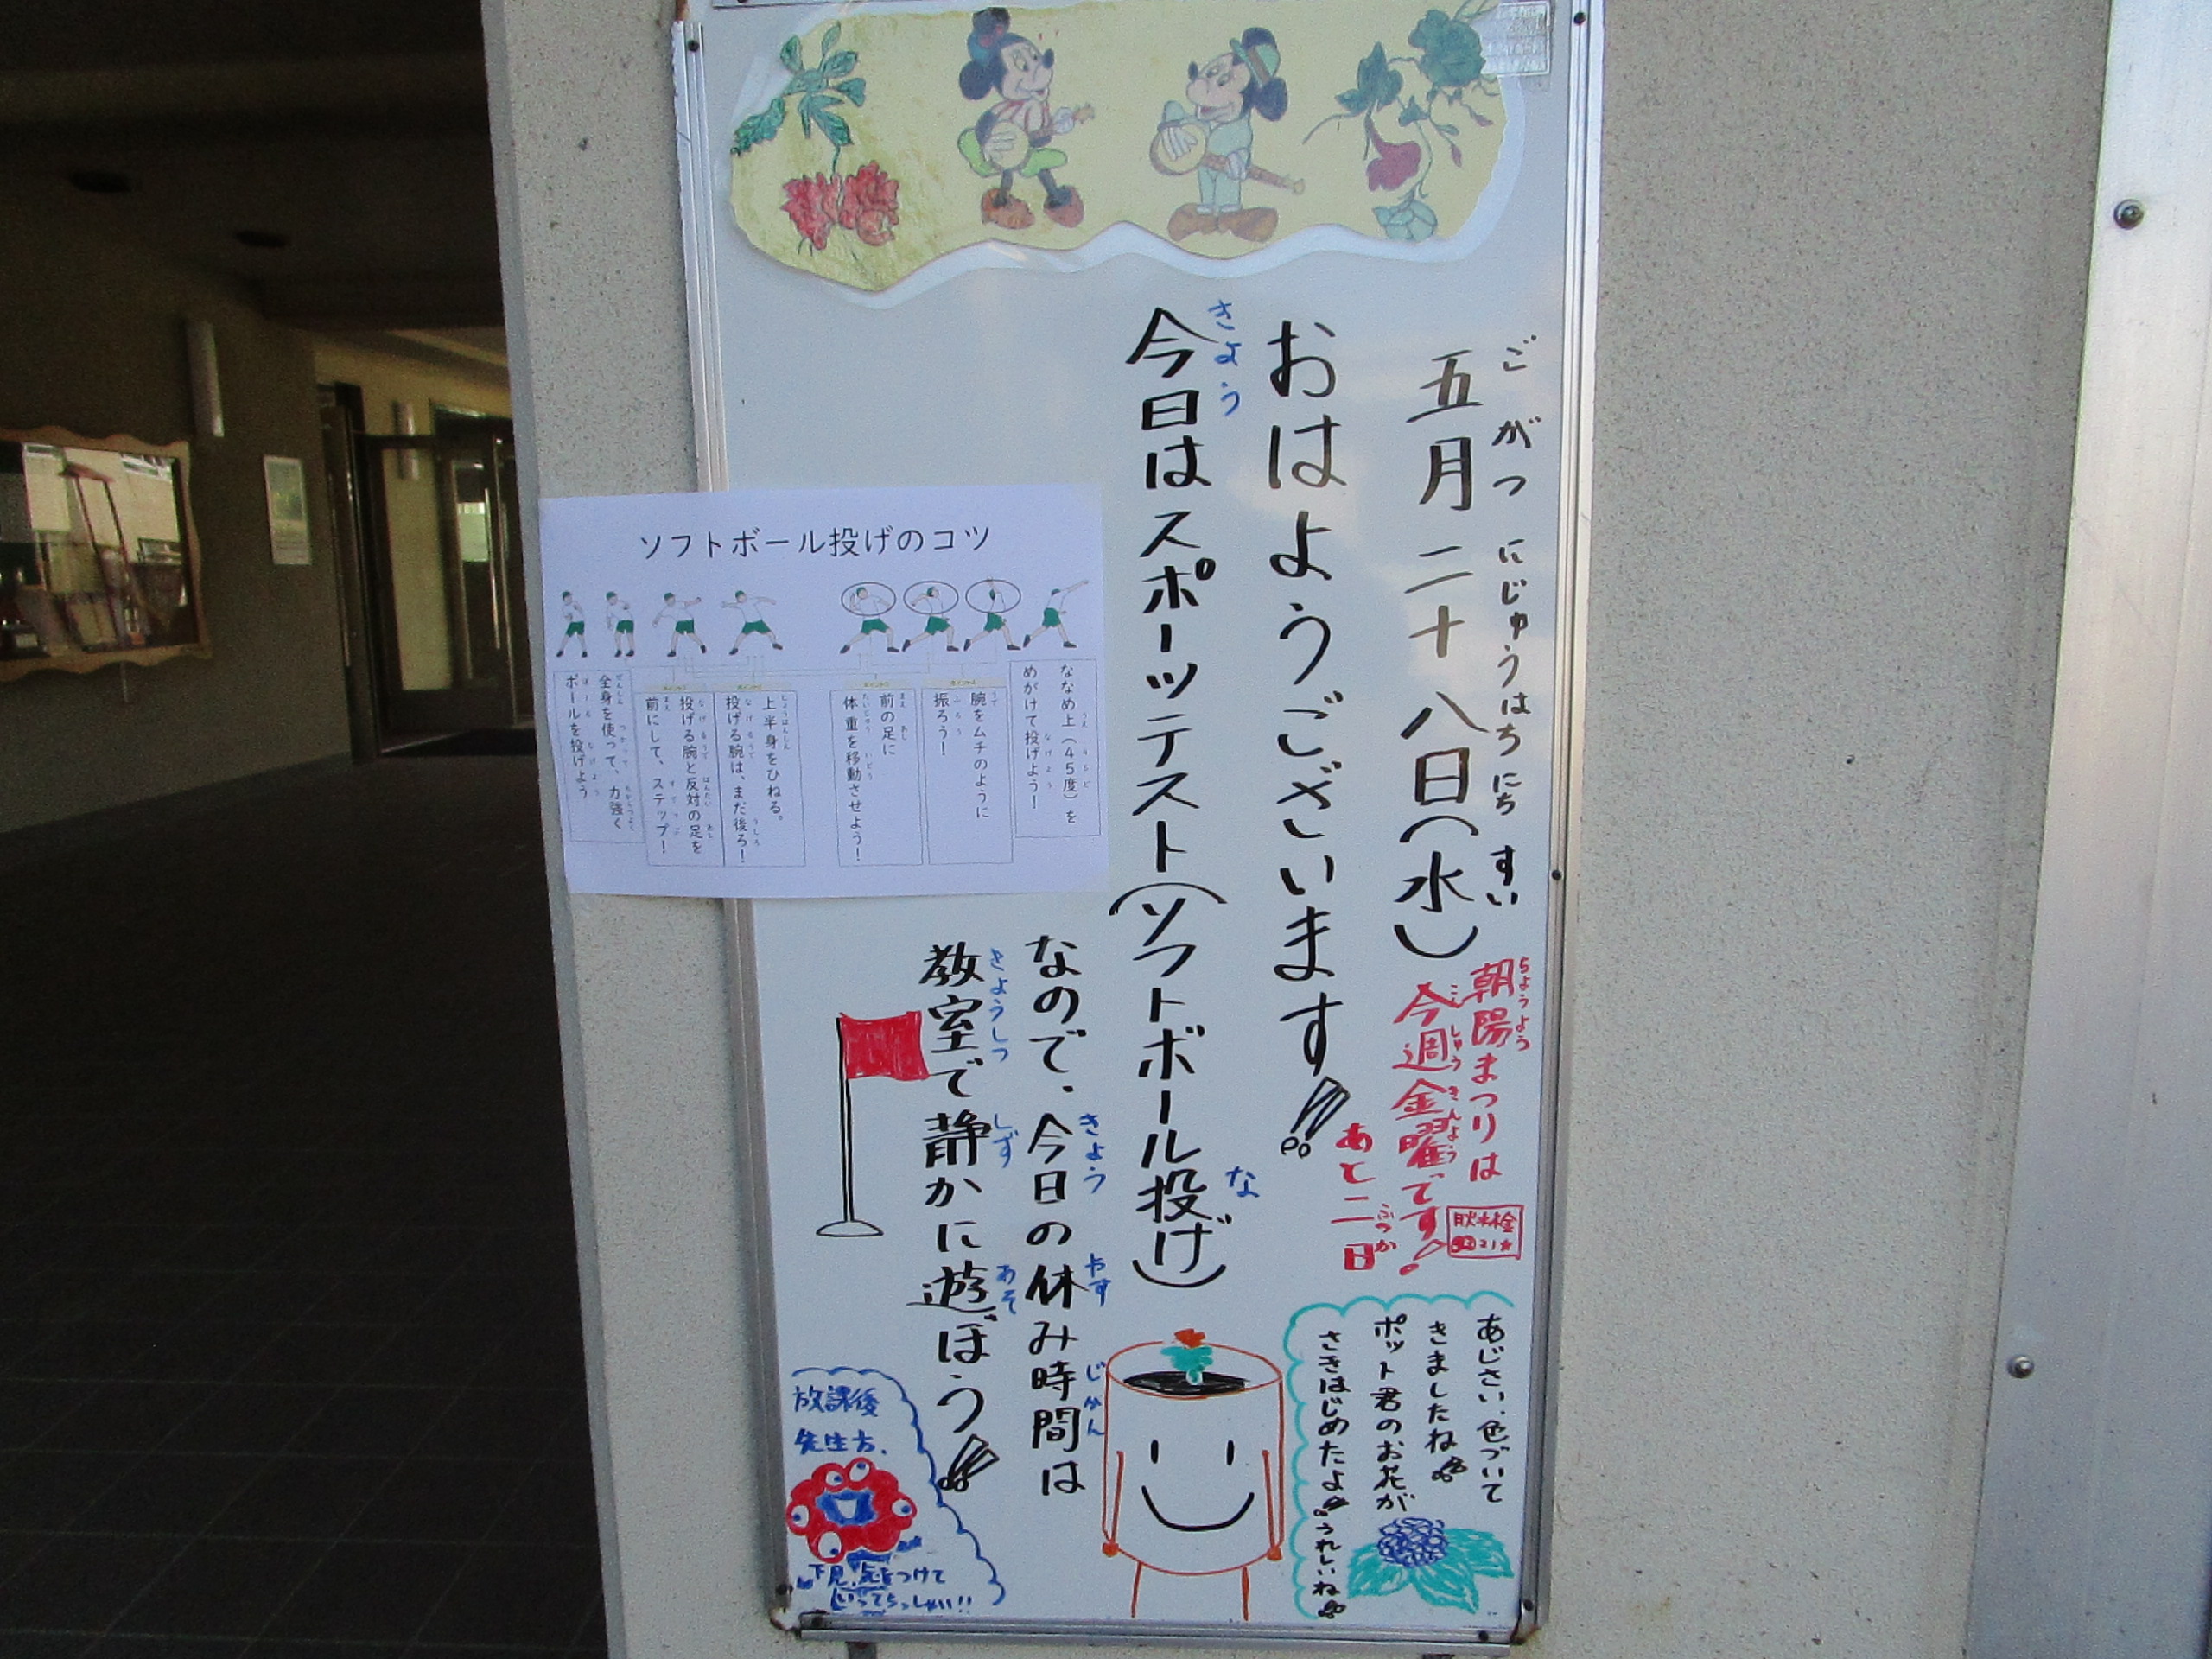 五月二十八日(水)
ごがつにじゅうはちにちすい
おはようございます!!
今日はスポーツテスト(ソフトボール投げ)
きょう
な
なので、今日の休み時間は
きょう
やす
じかん
教室で静かに遊ぼう!!
きょうしつ
しず
あそ
朝陽まつりは
ちょうよう
今週金曜です!
こんしゅうきんよう
あと二日
ふつか
あじさい、色づいて
きましたね!!
ポット君のお花が
さきはじめたよ!!うれしいね!!
放課後
先生方、
下見、気をつけて
いってらっしゃい!!
ソフトボール投げのコツ
全身を使って、力強く
ボールを投げよう
投げる腕と反対の足を
前にして、ステップ!
上半身をひねる。
投げる腕は、まだ後ろ!
前の足に
体重を移動させよう!
腕をムチのように
振ろう!
ななめ上(45度)を
めがけて投げよう!